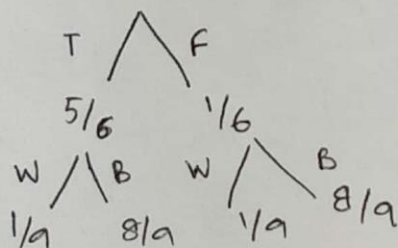 T F
5/6 1/6
W B W B
1/9 8/9 1/9 8/9